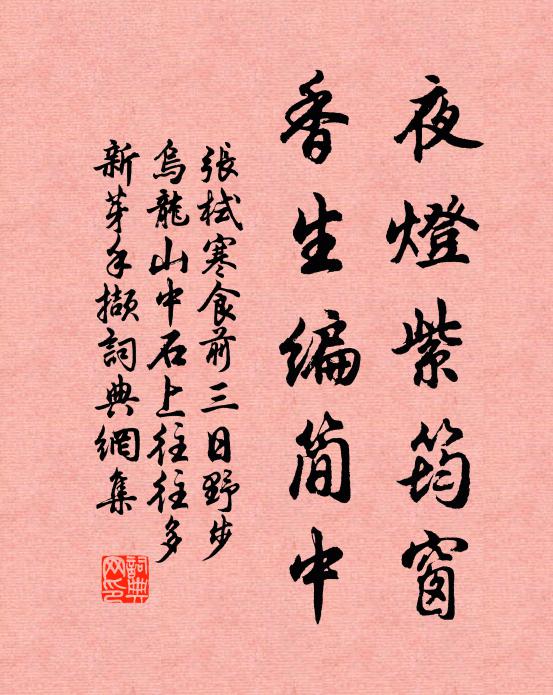 夜燈紫筠窗
香生编简中
張栻寒食前三日野步
烏龍山中石上往往多
新芽手擷詞典網集
詞典
网印